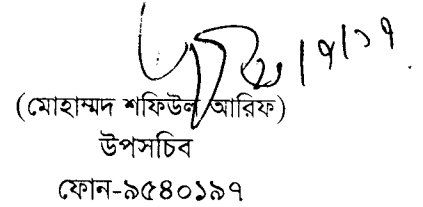 (মোহাম্মদ শফিউল আরিফ)
উপসচিব
ফোন-৯৫৪০১৯৭